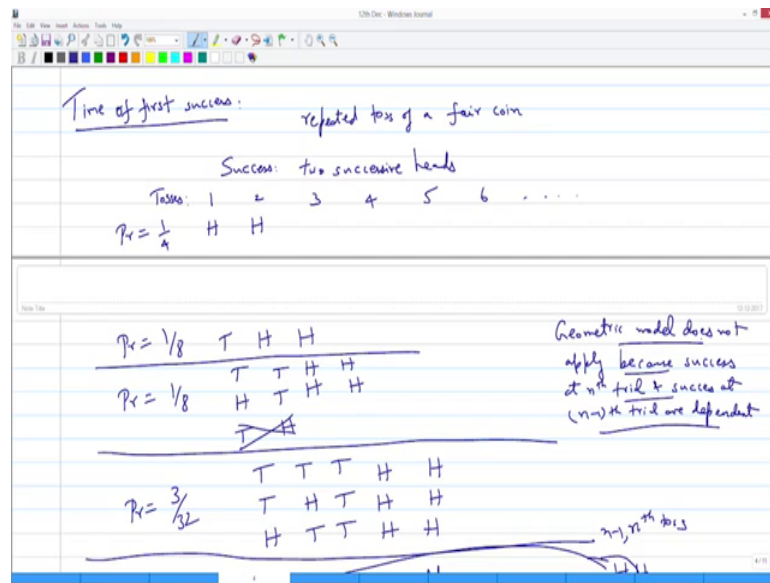 12th Dec - Windows Journal
File Edit View Insert Actions Tools Help
Time of first success:
repeated toss of a fair coin
Success: two successive heads
Tosses: 1 2 3 4 5 6 . . . .
Pr = 1/4 H H
Note Title
12-12-2017
Pr = 1/8 T H H
T T H H
Pr = 1/8 H T H H
T H
T T T H H
Pr = 3/32 T H T H H
H T T H H
Geometric model does not
apply because success
at nth trial & success at
(n-1)th trial are dependent
n-1, nth toss
H H